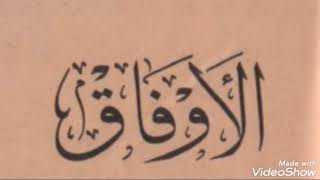 الأَوفَاق
Made with
VideoShow